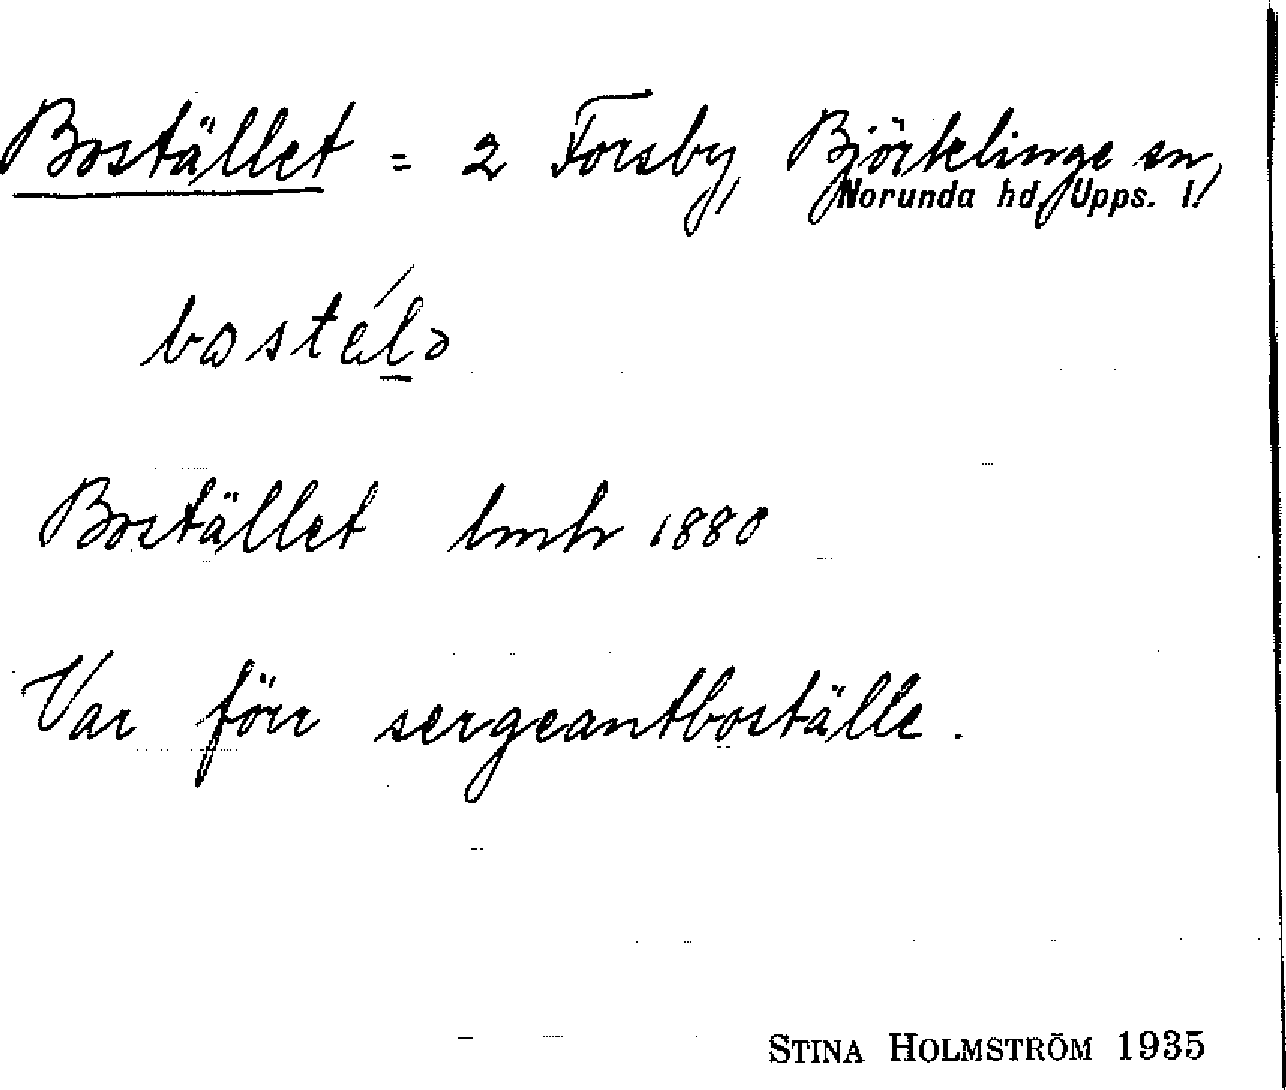 Bostället = 2 Forsby, Björklinge sn,
Norunda hd, Upps. l.
Bostället lmh 1880
Var förr sergeantboställe.
STINA HOLMSTRÖM 1935